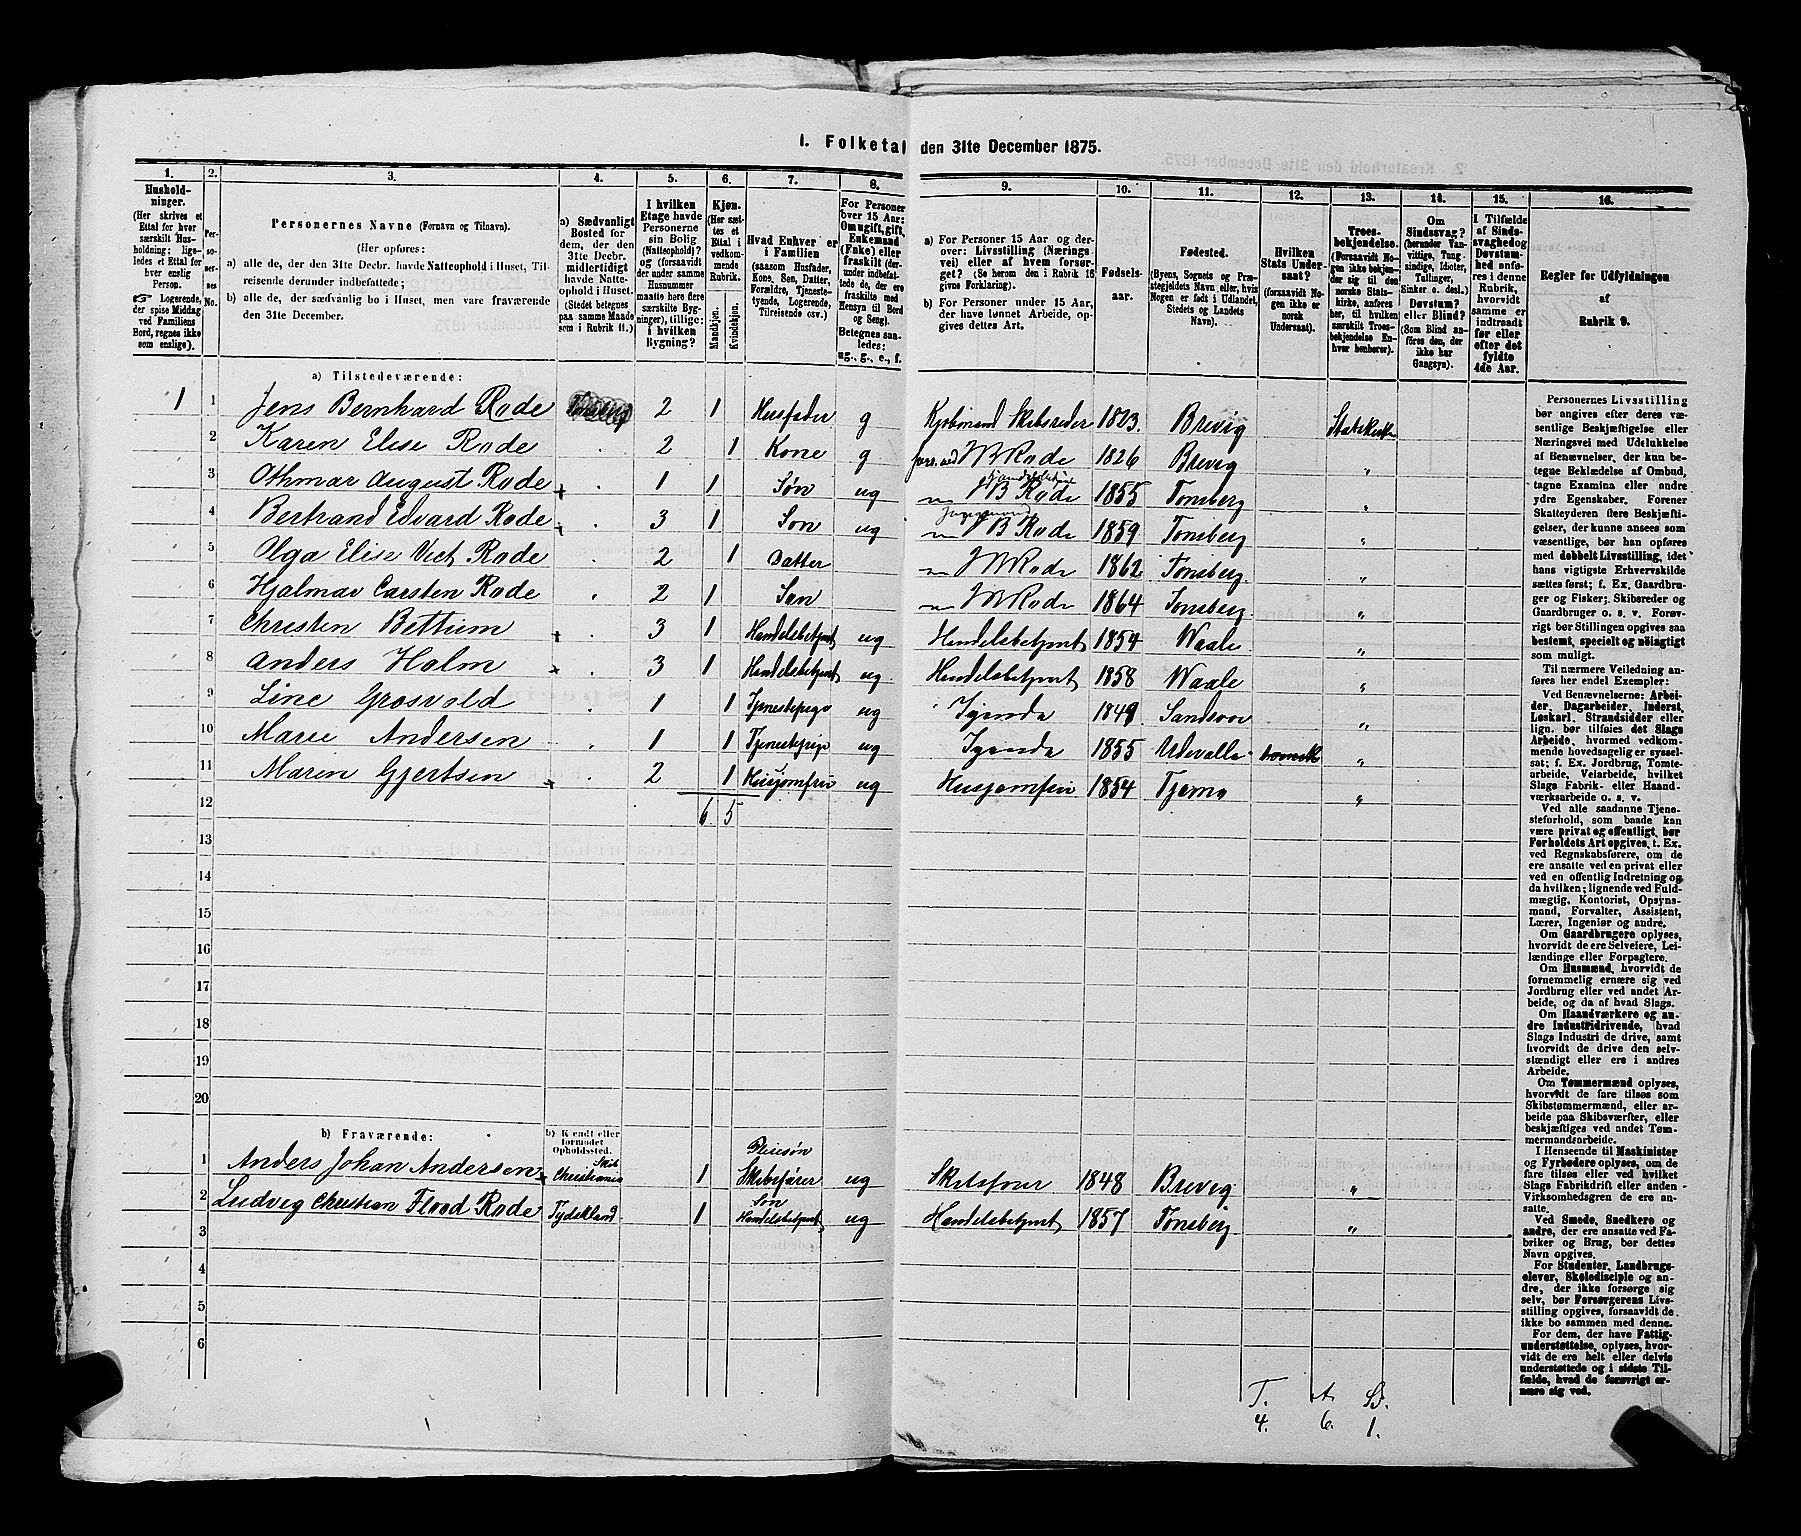 1. Folketal den 31te December 1875.
1.
2.
3.
4.
5.
6.
7.
8.
9.
10.
11.
12.
13.
14.
15.
16.
Hushold-
ninger.
(Her skrives et
Ettal for hver
særskilt Hus-
holdning; lige-
ledes et Ettal for
hver enslig
Person.
☞ Logerende,
der spise Middag
ved Familiens
Bord, regnes ikke
som enslige).
Per-
so-
ner-
nes
No.
Personernes Navne (Fornavn og Tilnavn).
(Her opføres:
a) alle de, der den 31te Decbr. havde Natteophold i Huset, Til-
reisende derunder indbefattede;
b) alle de, der sædvanlig bo i Huset, men vare fraværende
den 31te December.
a) Sædvanligt
Bosted for
dem, der den
31te Decbr.
midlertidigt
havde Natte-
ophold i Huset.
(Stedet betegnes
paa samme Maade
som i Rubrik 11.)
I hvilken
Etage havde
Personerne
sin Bolig
(Natteophold)?
og (forsaavidt
der under samme
Husnummer
maatte høre flere
særskilte Byg-
ninger), tillige:
i hvilken
Bygning?
Kjøn.
(Her sæt-
tes et
Ettal i
vedkom-
mende
Rubrik.
Mandkjøn.
Kvindekjøn.
Hvad Enhver er
i Familien
(saasom Husfader,
Kone, Søn, Datter,
Forældre, Tjeneste-
tyende, Logerende,
Tilreisende osv.)
For Personer
over 15 Aar:
Om ugift, gift,
Enkemand
(Enke) eller
fraskilt (der-
under indbefat-
tede de, der ere
fraskilte med
Hensyn til Bord
og Seng).
Betegnes saa-
ledes:
ug., g., e., f.
a) For Personer 15 Aar og der-
over: Livsstilling (Nærings-
vei) eller af hvem forsør-
get? (Se herom den i Rubrik 16
givne Forklaring).
b) For Personer under 15 Aar,
der have lønnet Arbeide, op-
gives dettes Art.
Fødsels-
aar.
Fødested.
(Byens, Sognets og Præ-
stegjeldets Navn eller, hvis
Nogen er født i Udlandet,
Stedets og Landets
Navn).
Hvilken
Stats Under-
saat?
(forsaavidt No-
gen ikke er
norsk
Undersaat).
Troes-
bekjendelse.
(Forsaavidt No-
gen ikke bekjen-
der sig til den
norske Stats-
kirke, anføres
her, til hvilken
særskilt Troes-
bekjendelse En-
hver henhører).
Om
Sindssvag?
(herunder Van-
vittige, Tung-
sindige, Idioter,
Tullinger,
Sinker o. desl.)
Døvstum?
eller Blind?
(Som Blind an-
føres den, der
ikke har
Gangsyn).
I Tilfælde
af Sinds-
svaghed og
Døvstum-
hed anfø-
res i denne
Rubrik,
hvorvidt
samme er
indtraadt
før eller
efter det
fyldte
4de Aar.
Regler for Udfyldningen
af
Rubrik 9.
a) Tilstedeværende:
1 1 Jens Bernhard Rode Tønsberg 2 1 Husfader g Kjøbmand Skibsreder 1823 Brevig Statskirke
2 Karen Elise Rode 2 1 Kone g fors. ved J B Rode 1826 Brevig "
3 Othmar August Rode + 1 1 Søn ug J B Rode 1855 Tønsberg "
4 Bertrand Edvard Rode + 3 1 Søn ug J B Rode 1859 Tønsberg "
5 Olga Elise Vict Rode 2 1 Datter J B Rode 1862 Tønsberg "
6 Hjalmar Carsten Rode 2 1 Søn J B Rode 1864 Tønsberg "
7 Christen Bettum + 3 1 Handelsbetjent ug Handelsbetjent 1854 Waale "
8 Anders Holm + 3 1 Handelsbetjent ug Handelsbetjent 1858 Waale "
9 Line Grosvold 1 1 Tjenestepige ug Tyende 1849 "
10 Marie Andersen 1 1 Tjenestepige ug Tyende 1855 Udevalla svensk "
11 Maren Gjertsen + 2 1 Husjomfru ug Husjomfru 1854 Tjømø "
12 6 5
13
14
15
16
17
18
19
20
b) Fraværende:
b) Kjendt eller
formodet
Opholdssted.
1 Anders Johan Andersen + Skib Christiania 1 Pleiesøn Skibsfører ug Skibsfører 1848 Brevig "
2 Ludvig Christian Flood Rode Tydskland 1 Søn Handelsbetjent ug Handelsbetjent 1857 Tønsberg "
3
4
5
6
T. A. B.
4. 6. 1.
Personernes Livsstilling
bør angives efter deres væ-
sentlige Beskjæftigelse eller
Næringsvei med Udelukkelse
af Benævnelser, der kun be-
tegne Beklædelse af Ombud,
tagne Examina eller andre
ydre Egenskaber. Forener
Skatteyderen flere Beskjæfti-
gelser, der kunne ansees som
væsentlige, bør han opføres
med dobbelt Livsstilling, idet
hans vigtigste Erhvervskilde
sættes først; f. Ex. Gaardbru-
ger og Fisker; Skibsreder og
Gaardbruger o. s. v. Forøv-
rigt bør Stillingen opgives saa
bestemt, specielt og nöiagtigt
som muligt.
Til nærmere Veiledning an-
føres her endel Exempler:
Ved Benævnelserne: Arbei-
der, Dagarbeider, Inderst,
Løskarl, Strandsidder eller
lign. bør tilføies det Slags
Arbeide, hvormed vedkom-
mende hovedsagelig er syssel-
sat; f. Ex. Jordbrug, Tomte-
arbeide, Veiarbeide, hvilket
Slags Fabrik- eller Haand-
værksarbeide o. s. v.
Ved alle saadanne Tjene-
steforhold, som baade kan
være privat og offentligt, bør
Forholdets Art opgives, t. Ex.
ved Regnskabsførere, om de
ere ansatte ved en privat eller
ved en offentlig Indretning og
da hvilken; lignende ved Fuld-
mægtig, Kontorist, Opsyns-
mand, Forvalter, Assistent,
Lærer, Ingeniør og andre.
Om Gaardbrugere oplyses,
hvorvidt de ere Selveiere, Lei-
lændinge eller Forpagtere.
Om Husmænd, hvorvidt de
fornemmelig ernære sig ved
Jordbrug eller ved andet Ar-
beide, og da af hvad Slags.
Om Haandværkere og an-
dre Industridrivende, hvad
Slags Industri de drive, samt
hvorvidt de drive den selv-
stændigt eller ere i andres
Arbeide.
Om Tømmermænd oplyses,
hvorvidt de fare tilsøs som
Skibstømmermænd, eller ar-
beide paa Skibsværfter, eller
beskjæftiges ved andet Tøm-
mermandsarbeide.
I Henseende til Maskinister
og Fyrbødere oplyses, om de
fare tilsøs eller ved hvilket
Slags Fabrikdrift eller anden
Virksomhedsgren de ere an-
satte.
Ved Smede, Snedkere og
andre, der ere ansatte ved Fa-
briker og Brug, bør dettes
Navn opgives.
For Studenter, Landbrugs-
elever, Skoledisciple og an-
dre, der ikke forsørge sig
selv, bør Forsørgerens Livs-
stilling opgives, forsaavidt de
ikke bo sammen med denne.
For dem, der have Fattig-
understøttelse, oplyses, hvor-
vidt de ere helt eller delvis
understøttede og i sidste Til-
fælde, hvad de forøvrigt er-
nære sig ved.